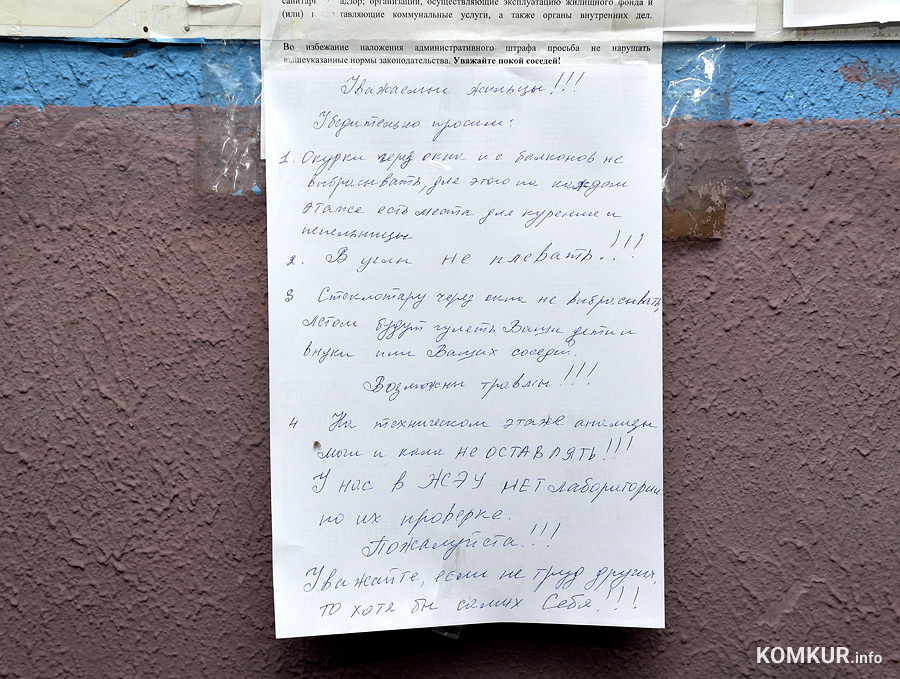 надзор; организации, осуществляющие эксплуатацию жилищного фонда и
(или) коммунальные услуги, а также органы внутренних дел.
Во избежание наложения административного штрафа просьба не нарушать
вышеуказанные нормы законодательства. Уважайте покой соседей!
Уважаемые жильцы!!!
Убедительно просим:
1. Окурки через окна и с балконов не
выбрасывать, для этого на каждом
этаже есть места для курения и
пепельницы
2. В углы не плевать!!!
3 Стеклотару через окна не выбрасывать,
летом будут гулять Ваши дети и
внуки или Ваших соседей.
Возможны травмы!!!
4 На техническом этаже анализы
мочи и кала НЕ ОСТАВЛЯТЬ!!!
У нас в ЖЭУ НЕТ лаборатории
по их проверке.
Пожалуйста!!!
Уважайте, если не труд других,
то хотя бы самих Себя!!!
KOMKUR.info